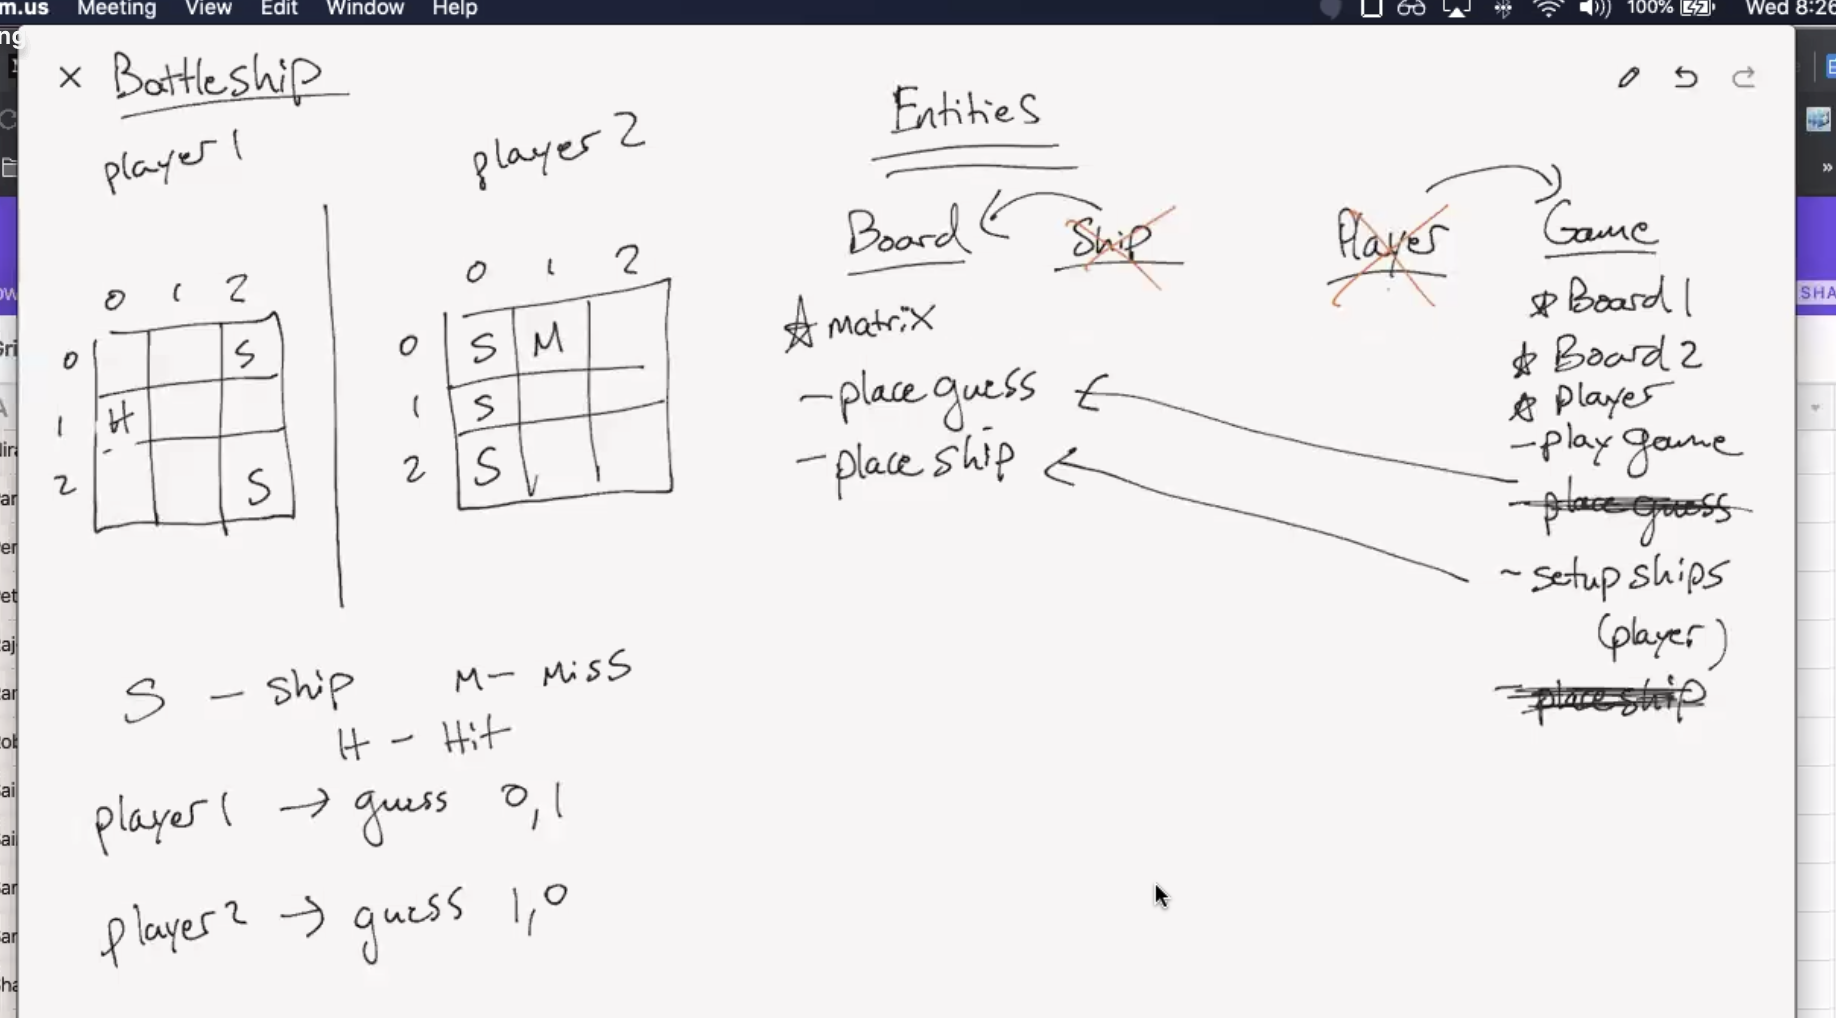 m.us Meeting View Edit Window Help 100% Wed 8:26
ng
× Battleship
player 1
player 2
0 1 2
0 S
1 H
2 S
0 1 2
0 S M
1 S
2 S
S - Ship
M - Miss
H - Hit
player 1 → guess 0,1
player 2 → guess 1,0
Entities
Board
☆ matrix
- place guess
- place ship
Ship
Player
Game
☆ Board 1
☆ Board 2
☆ Player
- play game
- place guess
- setup ships
(player)
- place ship
SHA